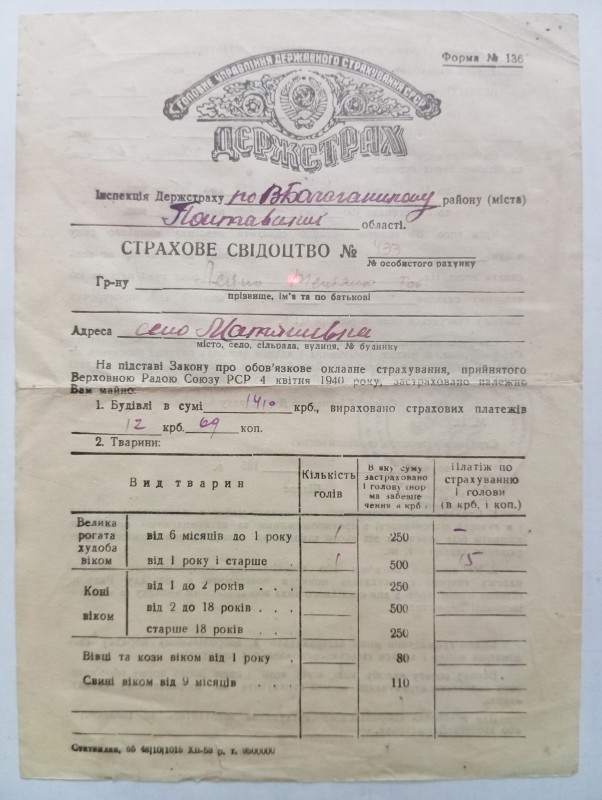 ГОЛОВНЕ УПРАВЛІННЯ ДЕРЖАВНОГО СТРАХУВАННЯ СРСР
ДЕРЖСТРАХ
Форма № 136
Інспекція Держстраху по В Багачанському району (міста)
Полтавській області.
СТРАХОВЕ СВІДОЦТВО № 433
№ особистого рахунку
Гр-ну
прізвище, ім'я та по батькові
Адреса село Матяшівка
місто, село, сільрада, вулиця, № будинку
На підставі Закону про обов'язкове окладне страхування, прийнятого
Верховною Радою Союзу РСР 4 квітня 1940 року, застраховано належне
Вам майно:
1. Будівлі в сумі 1410 крб., вираховано страхових платежів
12 крб. 69 коп.
2. Тварини:
Вид тварин
Кількість голів
В яку суму застраховано 1 голову (норма забезпечення в крб.)
Платіж по страхуванню 1 голови (в крб. і коп.)
Велика рогата худоба віком
від 6 місяців до 1 року 1 250 –
від 1 року і старше . 1 500 15
Коні віком
від 1 до 2 років . . . 250
від 2 до 18 років . . . 500
старше 18 років . . . 250
Вівці та кози віком від 1 року . 80
Свині віком від 9 місяців . . . 110